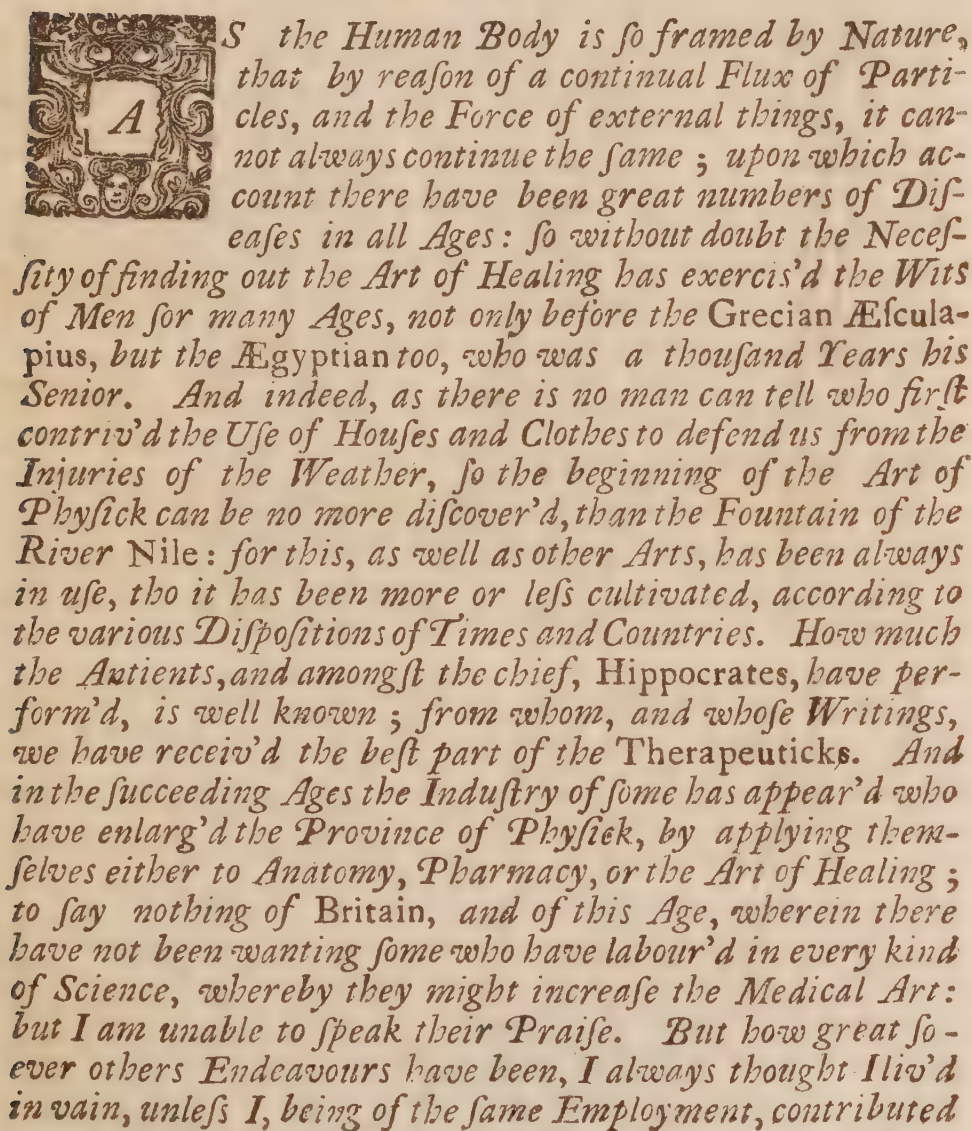 AS the Human Body is ſo framed by Nature,
that by reaſon of a continual Flux of Parti-
cles, and the Force of external things, it can-
not always continue the ſame ; upon which ac-
count there have been great numbers of Diſ-
eaſes in all Ages : ſo without doubt the Neceſ-
ſity of finding out the Art of Healing has exercis'd the Wits
of Men for many Ages, not only before the Grecian Æſcula-
pius, but the Ægyptian too, who was a thouſand Years his
Senior. And indeed, as there is no man can tell who firſt
contriv'd the Uſe of Houſes and Clothes to defend us from the
Injuries of the Weather, ſo the beginning of the Art of
Phyſick can be no more diſcover'd, than the Fountain of the
River Nile : for this, as well as other Arts, has been always
in uſe, tho it has been more or leſs cultivated, according to
the various Diſpoſitions of Times and Countries. How much
the Antients, and amongſt the chief, Hippocrates, have per-
form'd, is well known ; from whom, and whoſe Writings,
we have receiv'd the beſt part of the Therapeuticks. And
in the ſucceeding Ages the Induſtry of ſome has appear'd who
have enlarg'd the Province of Phyſick, by applying them-
ſelves either to Anatomy, Pharmacy, or the Art of Healing ;
to ſay nothing of Britain, and of this Age, wherein there
have not been wanting ſome who have labour'd in every kind
of Science, whereby they might increaſe the Medical Art :
but I am unable to ſpeak their Praiſe. But how great ſo-
ever others Endeavours have been, I always thought I liv'd
in vain, unleſs I, being of the ſame Employment, contributed